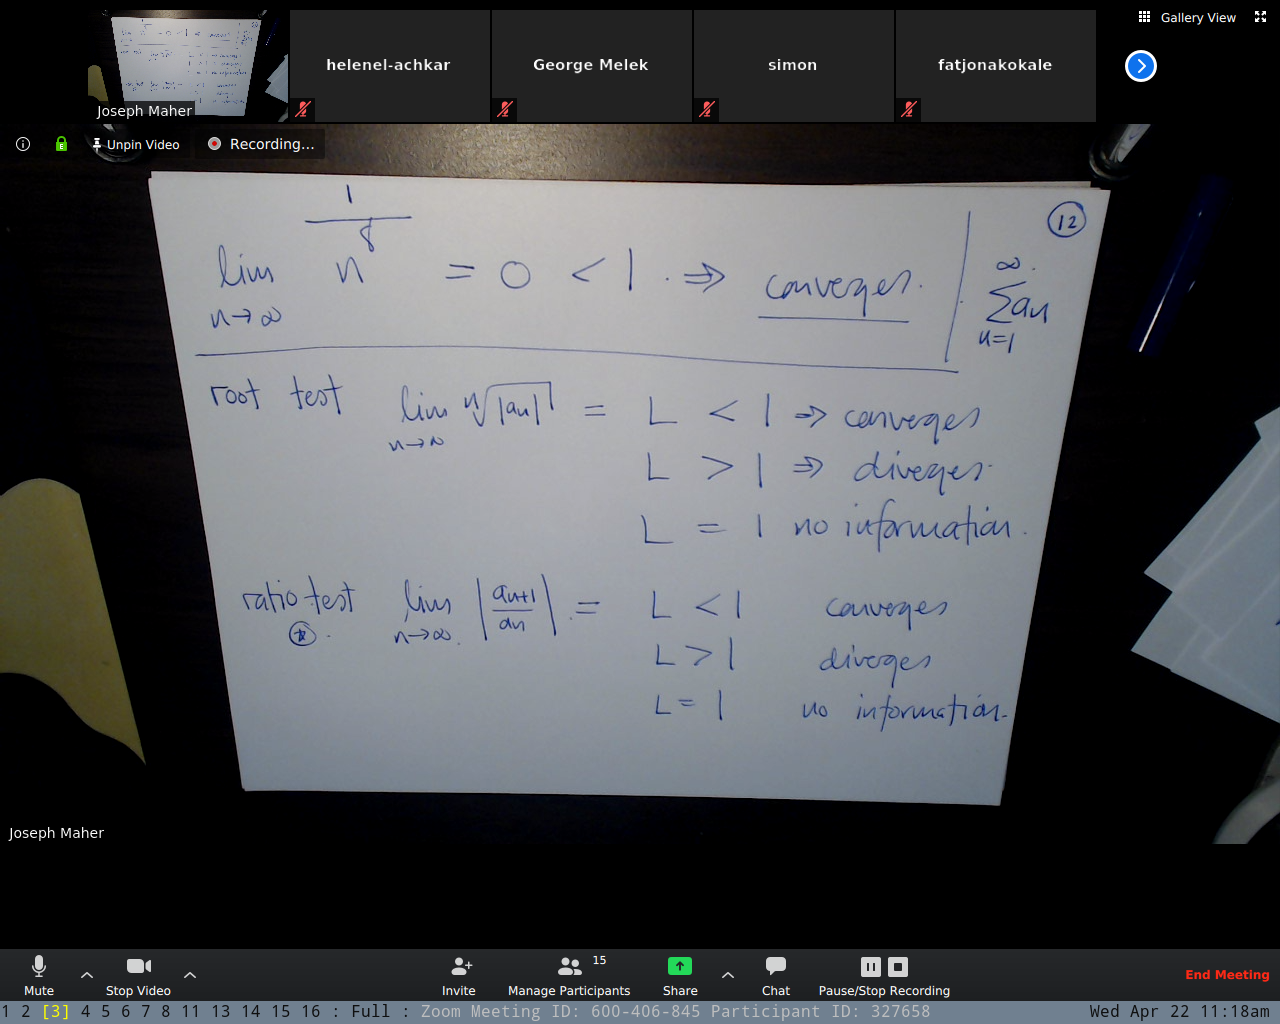 Gallery View
helenel-achkar
George Melek
simon
fatjonakokale
Joseph Maher
Unpin Video
Recording...
12
lim n→∞ 1/n^8 = 0 < 1 . ⇒ converges.
∞ ∑ an n=1
root test lim n→∞ n√|an| = L < 1 ⇒ converges
L > 1 ⇒ diverges.
L = 1 no information.
ratio test lim n→∞ |an+1/an| = L < 1 converges
L > 1 diverges
L = 1 no information.
Joseph Maher
Mute
Stop Video
Invite
15
Manage Participants
Share
Chat
Pause/Stop Recording
End Meeting
1 2 [3] 4 5 6 7 8 11 13 14 15 16 : Full : Zoom Meeting ID: 600-406-845 Participant ID: 327658
Wed Apr 22 11:18am